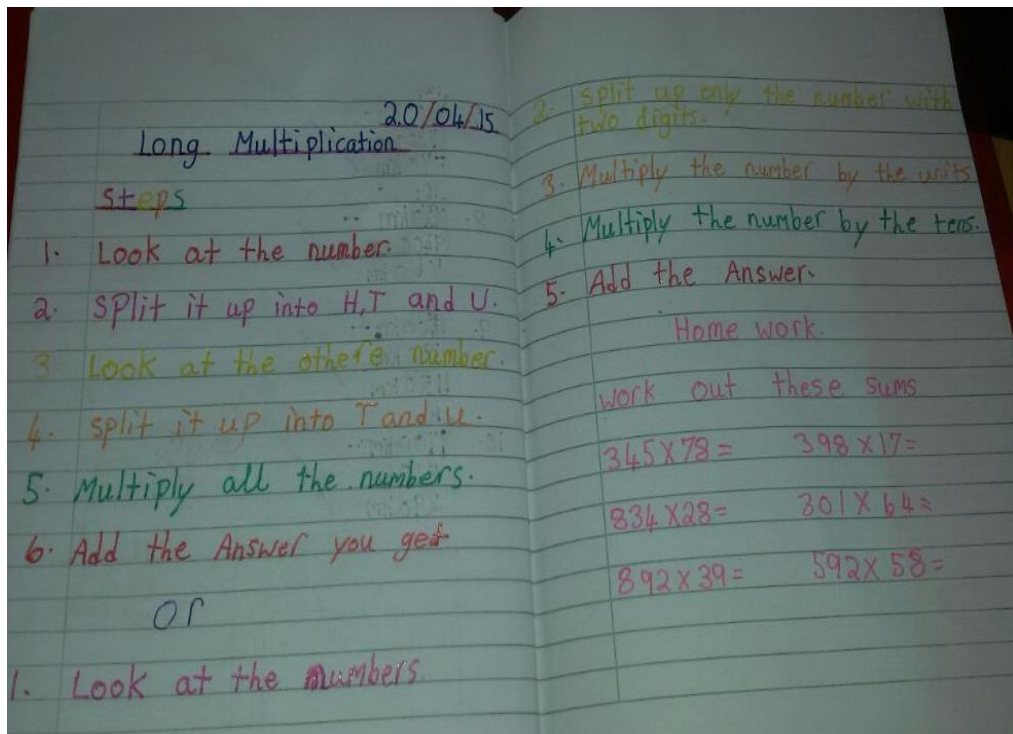 20/04/15
Long Multiplication
Steps
1. Look at the number.
2. Split it up into H,T and U.
3 Look at the othere number.
4. split it up into T and U.
5. Multiply all the numbers.
6. Add the Answer you get
or
1. Look at the numbers
2. split up only the number with
two digits.
3. Multiply the number by the units
4. Multiply the number by the tens.
5. Add the Answer.
Home work.
work out these sums
345X78= 398X17=
834X28= 301X64=
892X39= 592X58=